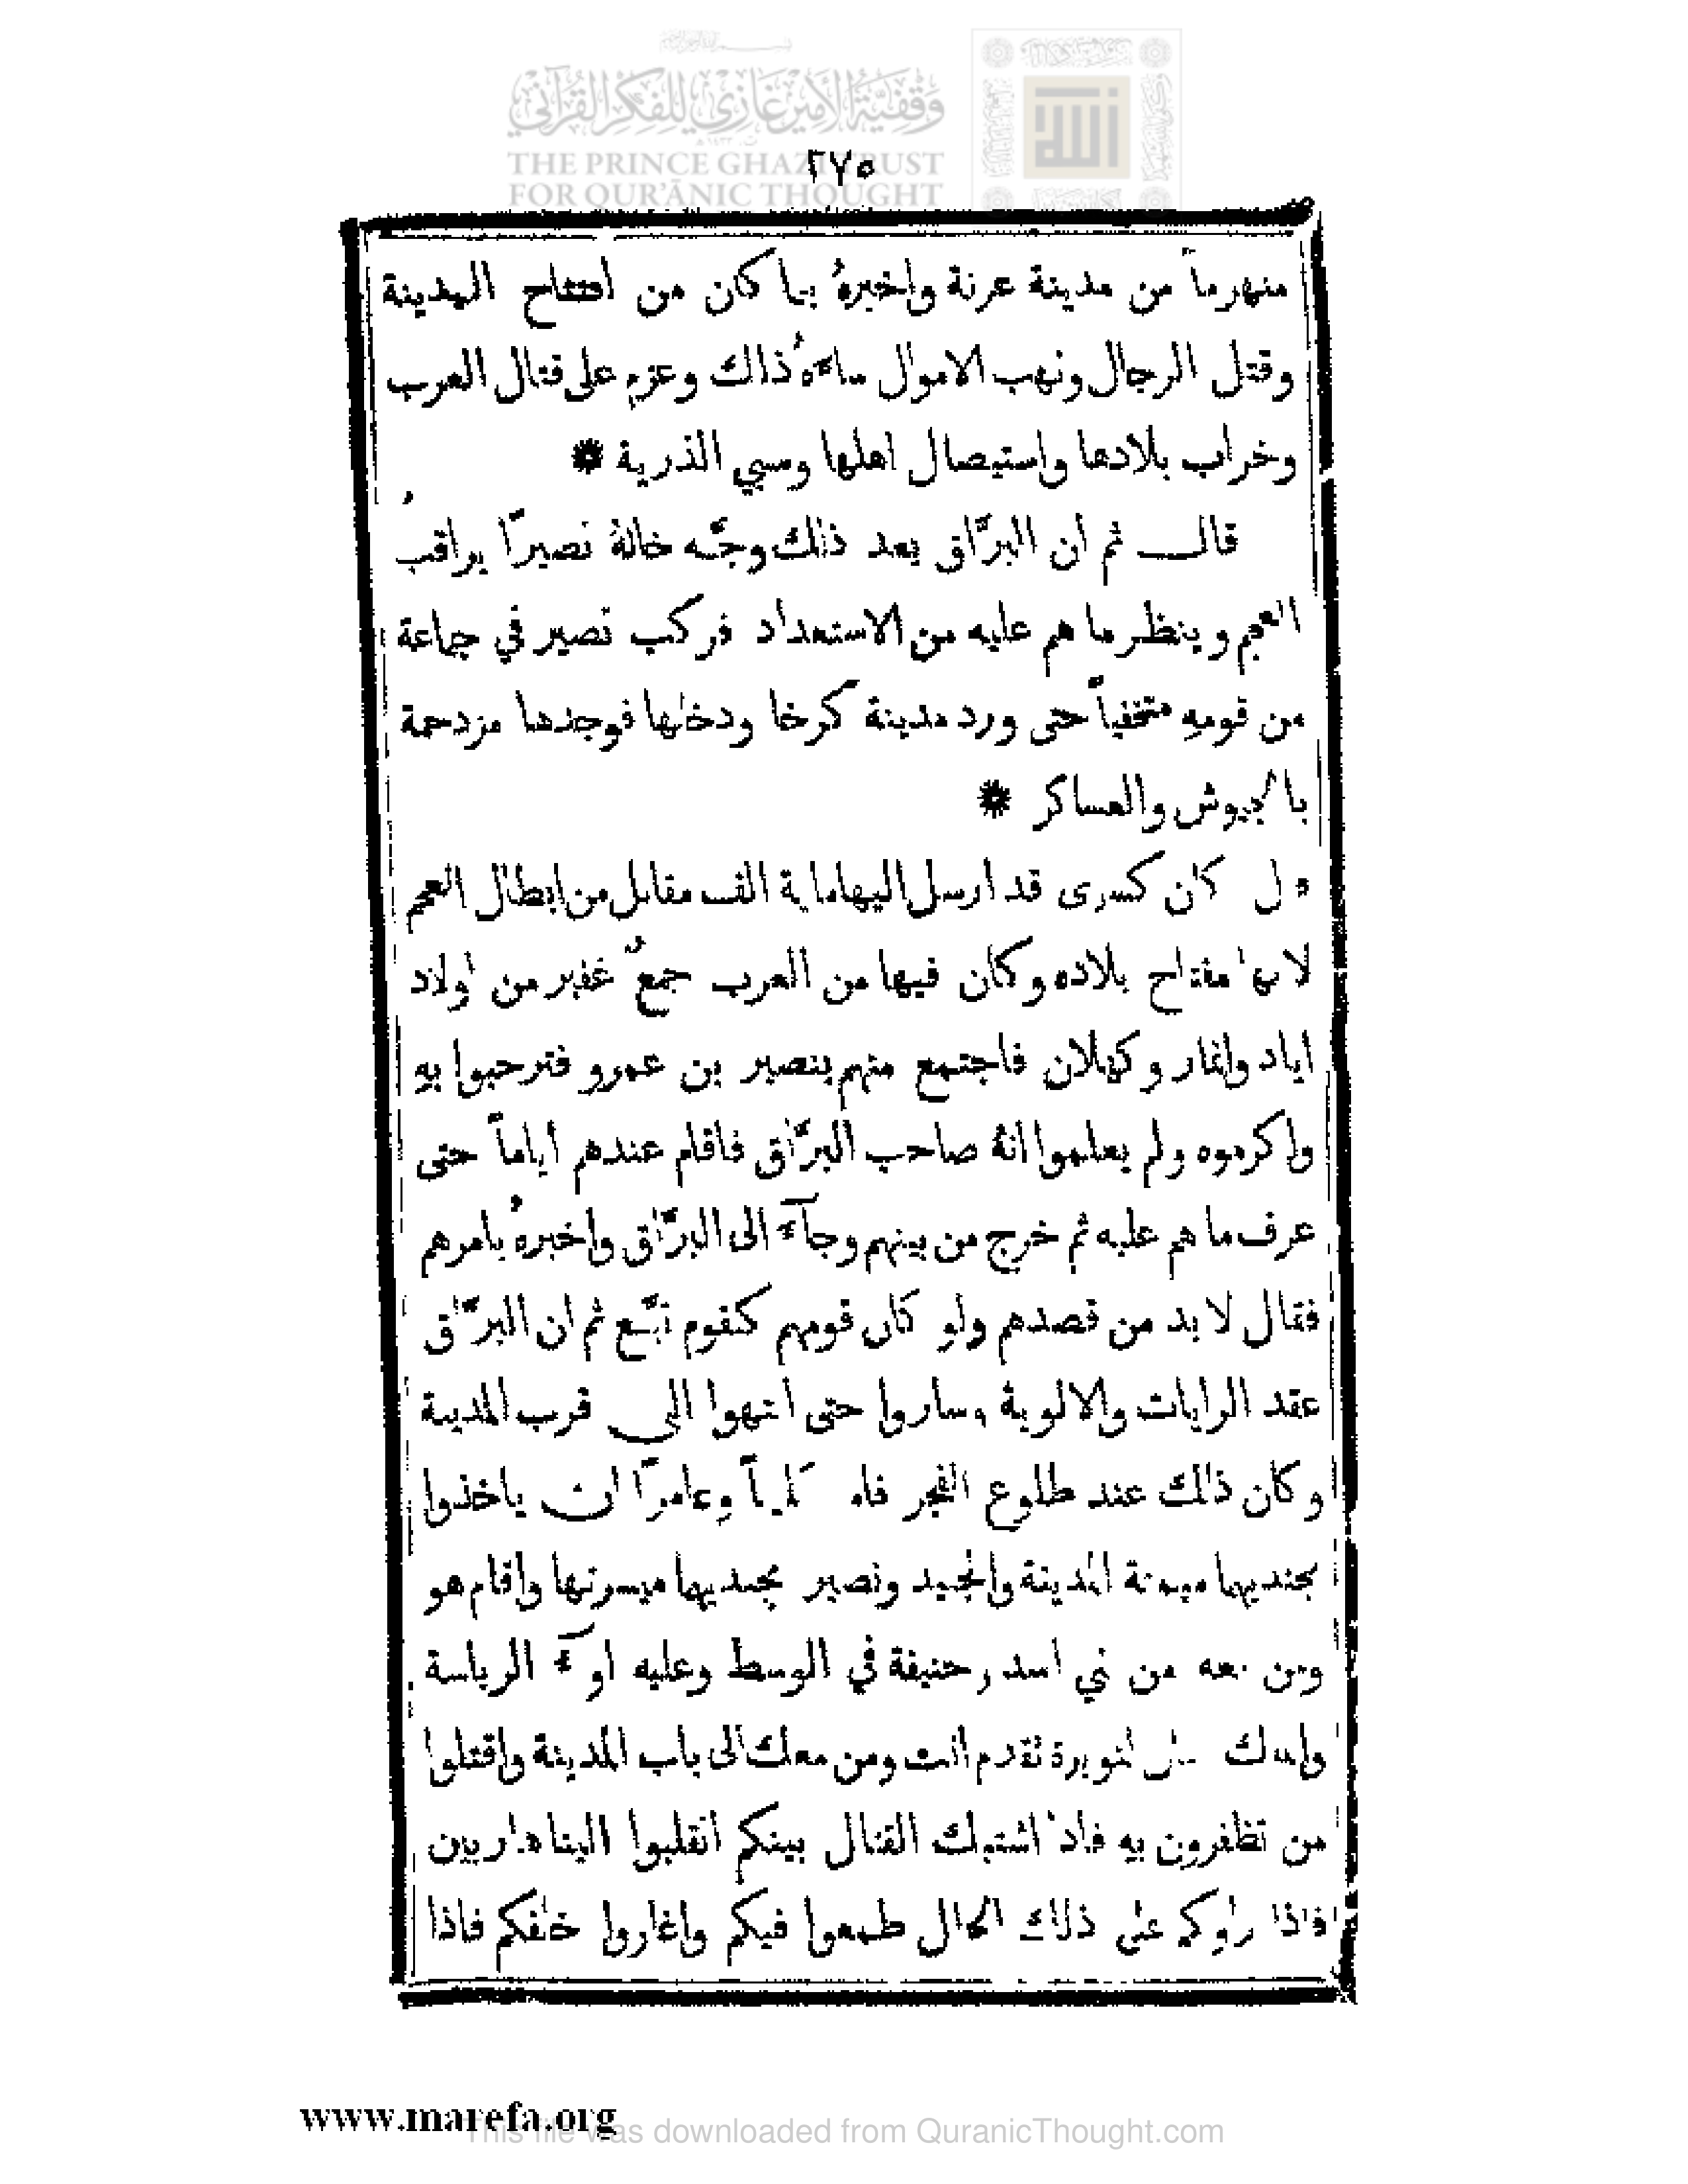 وقفية الأمير غازي للفكر القرآني
THE PRINCE GHAZI TRUST
FOR QUR'ĀNIC THOUGHT
٢٧٥
منهزماً من مدينة عرنة واخبرهُ بما كان من افتتاح المدينة
وقتل الرجال ونهب الاموال ساءهُ ذاك وعزم على قتال العرب
وخراب بلادها واستيصال اهلها وسبي الذرية *
قال ثم ان البرَّاق بعد ذلك وجَّه خالهُ نصيرًا يراقبُ
العجم وينظر ما هم عليه من الاستعداد فركب نصير في جماعة
من قومهِ متخفياً حتى ورد مدينة كرخا ودخلها فوجدها مزدحمة
بالجيوش والعساكر *
كان كسرى قد ارسل اليها ماية الف مقاتل من ابطال العجم
لانها مفتاح بلاده وكان فيها من العرب جمعٌ غفير من اولاد
اياد وانمار وكهلان فاجتمع منهم بنصير بن عمرو فترحبوا بهِ
واكرموه ولم يعلموا انهُ صاحب البرَّاق فاقام عندهم اياماً حتى
عرف ما هم عليه ثم خرج من بينهم وجآءَ الى البرَّاق واخبرهُ بامرهم
فقال لا بد من قصدهم ولو كان قومهم كقوم تبَّع ثم ان البرَّاق
عقد الرايات والالوية وساروا حتى انتهوا الى قرب المدينة
وكان ذلك عند طلوع الفجر وعامرًا ان ياخذوا
بجنديهما ميمنة المدينة والجنيد ونصير بجنديهما ميسرتها واقام هو
ومن معه من بني اسد وحنيفة في الوسط وعليه الرياسة
لنويرة تقدم انت ومن معك الى باب المدينة واقتلوا
من تظفرون بهِ فاذا اشتبك القتال بينكم انقلبوا الينا هاربين
فاذا راوكم على ذلك الحال طمعوا فيكم واغاروا خلفكم فاذا
www.marefa.org
This file was downloaded from QuranicThought.com